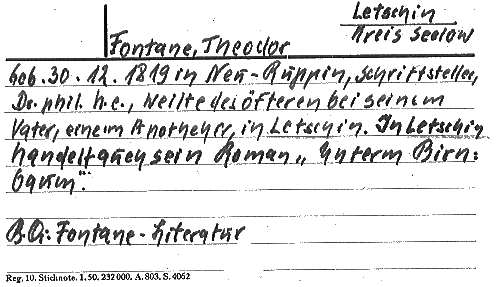 Letschin
Kreis Seelow
Fontane, Theodor
geb. 30. 12. 1819 in Neu-Ruppin, Schriftsteller,
Dr. phil. h.c., weilte des öfteren bei seinem
Vater, einem Apotheker, in Letschin. In Letschin
handelt auch sein Roman „Unterm Birn-
baum".
B.Qu: Fontane-Literatur
Reg. 10. Stichnote. 1. 50. 232000. A. 803. S. 4062